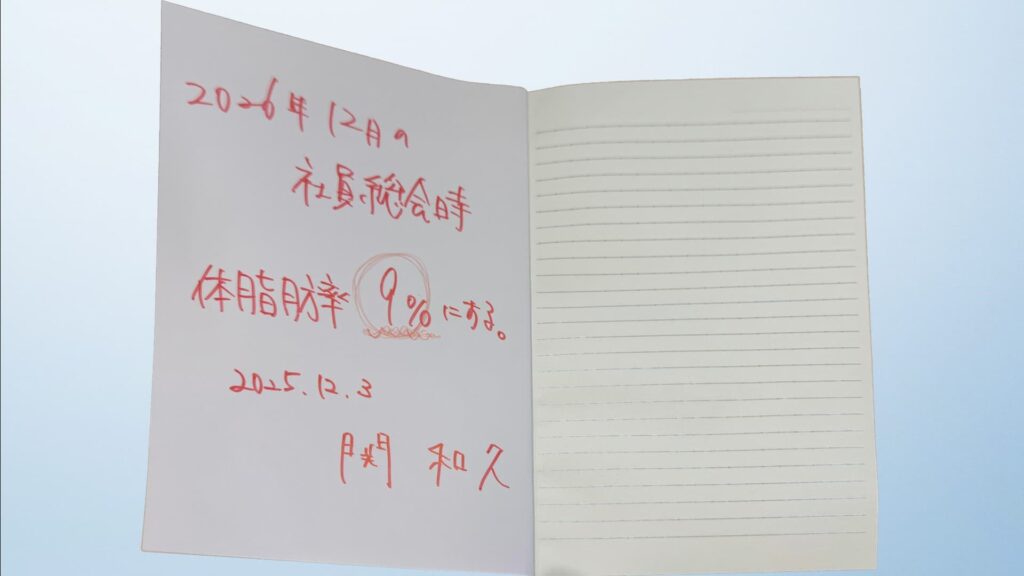 2026年12月の
社員総会時
体脂肪率 9%にする。
2025.12.3
関 和久